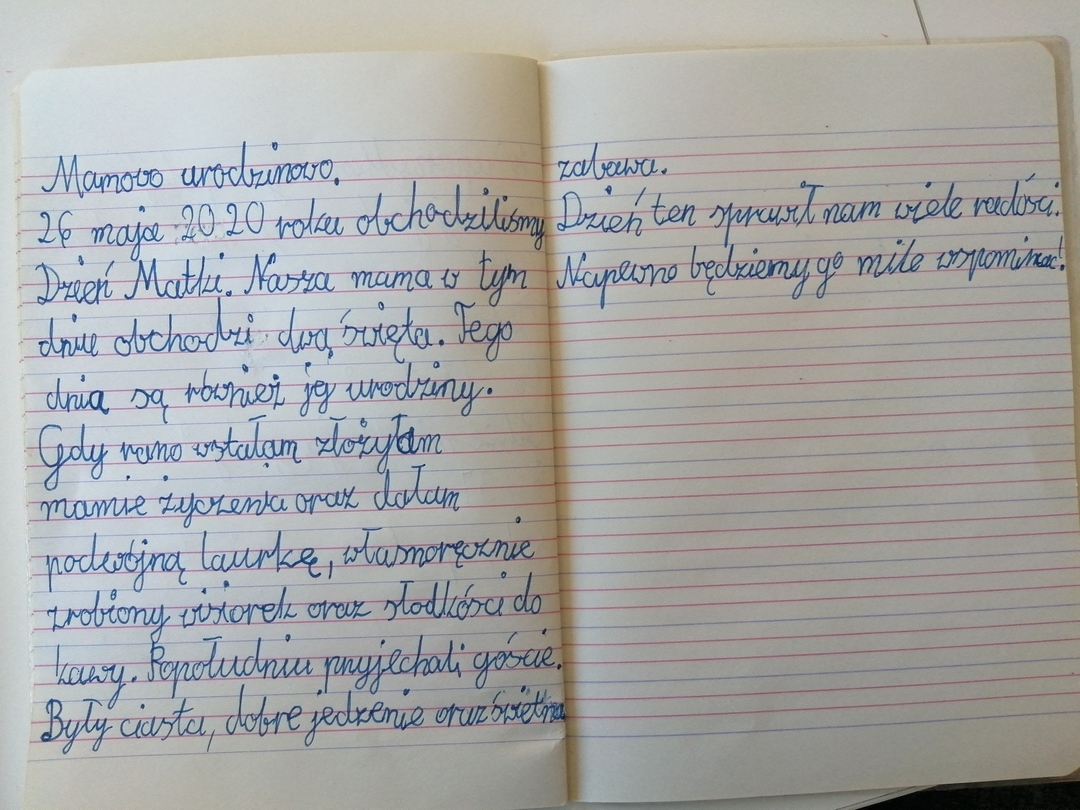 Mamowo urodzinowo.
26 maja 2020 roku obchodziliśmy
Dzień Matki. Nasza mama w tym
dniu obchodzi dwa święta. Tego
dnia są również jej urodziny.
Gdy rano wstałam złożyłam
mamie życzenia oraz dałam
podwójną laurkę, własnoręcznie
zrobiony wisiorek oraz słodkości do
kawy. Popołudniu przyjechali goście.
Były ciasta, dobre jedzenie oraz świetna
zabawa.
Dzień ten sprawił nam wiele radości.
Napewno będziemy go mile wspominać!